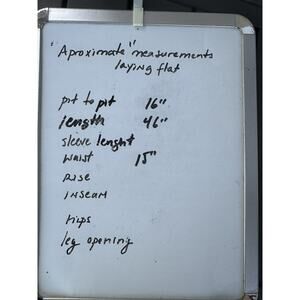 "Aproximate" measurements
laying flat
pit to pit 16"
length 46"
sleeve lenght
waist 15"
Rise
inseam
hips
leg opening